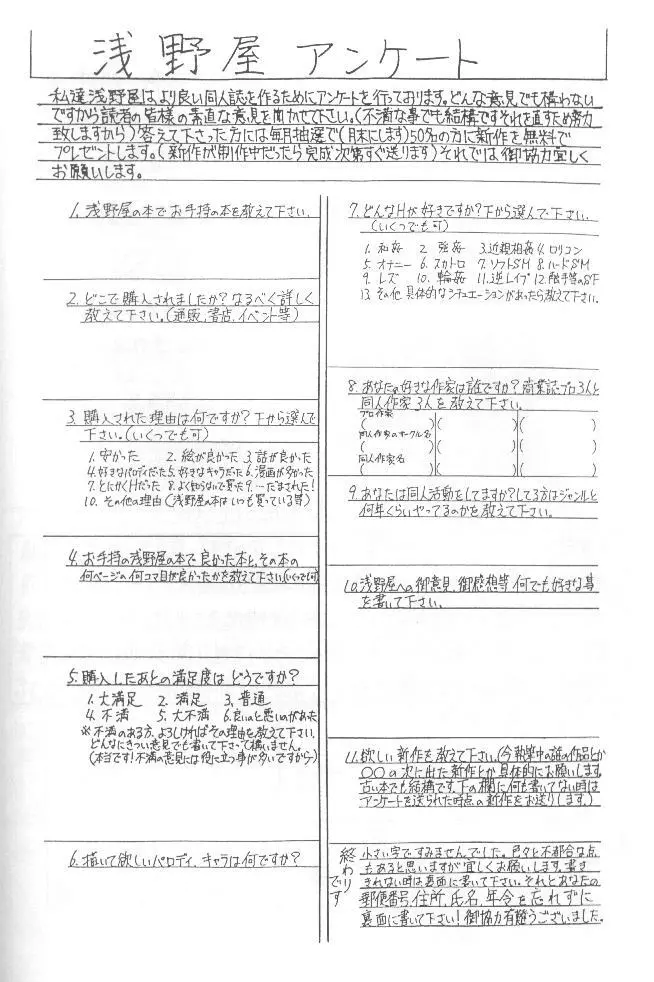 浅野屋 アンケート
私達浅野屋は、より良い同人誌を作るためにアンケートを行っております。どんな意見でも構わない
ですから読者の皆様の素直な意見を聞かせて下さい。(不満な事でも結構ですそれを直すため努力
致しますから)答えて下さった方には毎月抽選で(月末にします)50名の方に新作を無料で
プレゼントします。(新作が制作中だったら完成次第すぐ送ります)それでは、御協力宜しく
お願いします。
1. 浅野屋の本でお手持の本を教えて下さい.
2. どこで購入されましたか?なるべく詳しく
教えて下さい。(通販,書店,イベント等)
3. 購入された理由は何ですか?下から選んで
下さい。(いくつでも可)
1. 安かった 2. 絵が良かった 3. 話が良かった
4. 好きなパロディだった 5. 好きなキャラだった 6. 漫画が多かった
7. とにかくHだった 8. よく知らないで買った 9. …だまされた!
10. その他の理由(浅野屋の本はいつも買っている等)
4. お手持の浅野屋の本で良かった本と、その本の
何ページの何コマ目が良かったかを教えて下さい(いくつでも可)
5. 購入したあとの満足度はどうですか?
1. 大満足 2. 満足 3. 普通
4. 不満 5. 大不満 6. 良いのと悪いのがあった
※不満のある方、よろしければその理由を教えて下さい.
どんなにきつい意見でも書いて下さって構いません。
(本当です!不満の意見には役に立つ事が多いですから)
6. 描いて欲しいパロディ、キャラは何ですか?
7. どんなHが好きですか?下から選んで下さい。
(いくつでも可)
1. 和姦 2. 強姦 3. 近親相姦 4. ロリコン
5. オナニー 6. スカトロ 7. ソフトSM 8. ハードSM
9. レズ 10. 輪姦 11. 逆レイプ 12. 触手等のSF
13. その他 具体的なシチュエーションがあったら教えて下さい.
8. あなたの好きな作家は誰ですか?商業誌・プロ3人と
同人作家3人を教えて下さい。
プロ作家
( )( )( )
同人作家のサークル名
( )( )( )
同人作家名
( )( )( )
9. あなたは同人活動をしてますか?してる方はジャンルと
何年くらいやってるのかを教えて下さい。
10. 浅野屋への御意見、御感想等何でも好きな事
を書いて下さい.
11. 欲しい新作を教えて下さい.(今執筆中の話の作品とか
〇〇の次に出た新作とか具体的にお願いします.
古い本でも結構です.下の欄に何も書いてない時は
アンケートを送られた時点の新作をお送りします.)
終わりです
小さい字ですみませんでした。色々と不都合な点
もあると思いますが宜しくお願いします.書き
きれない時は裏面に書いて下さい.それとあなたの
郵便番号、住所、氏名、年令を忘れずに
裏面に書いて下さい!御協力有難うございました。